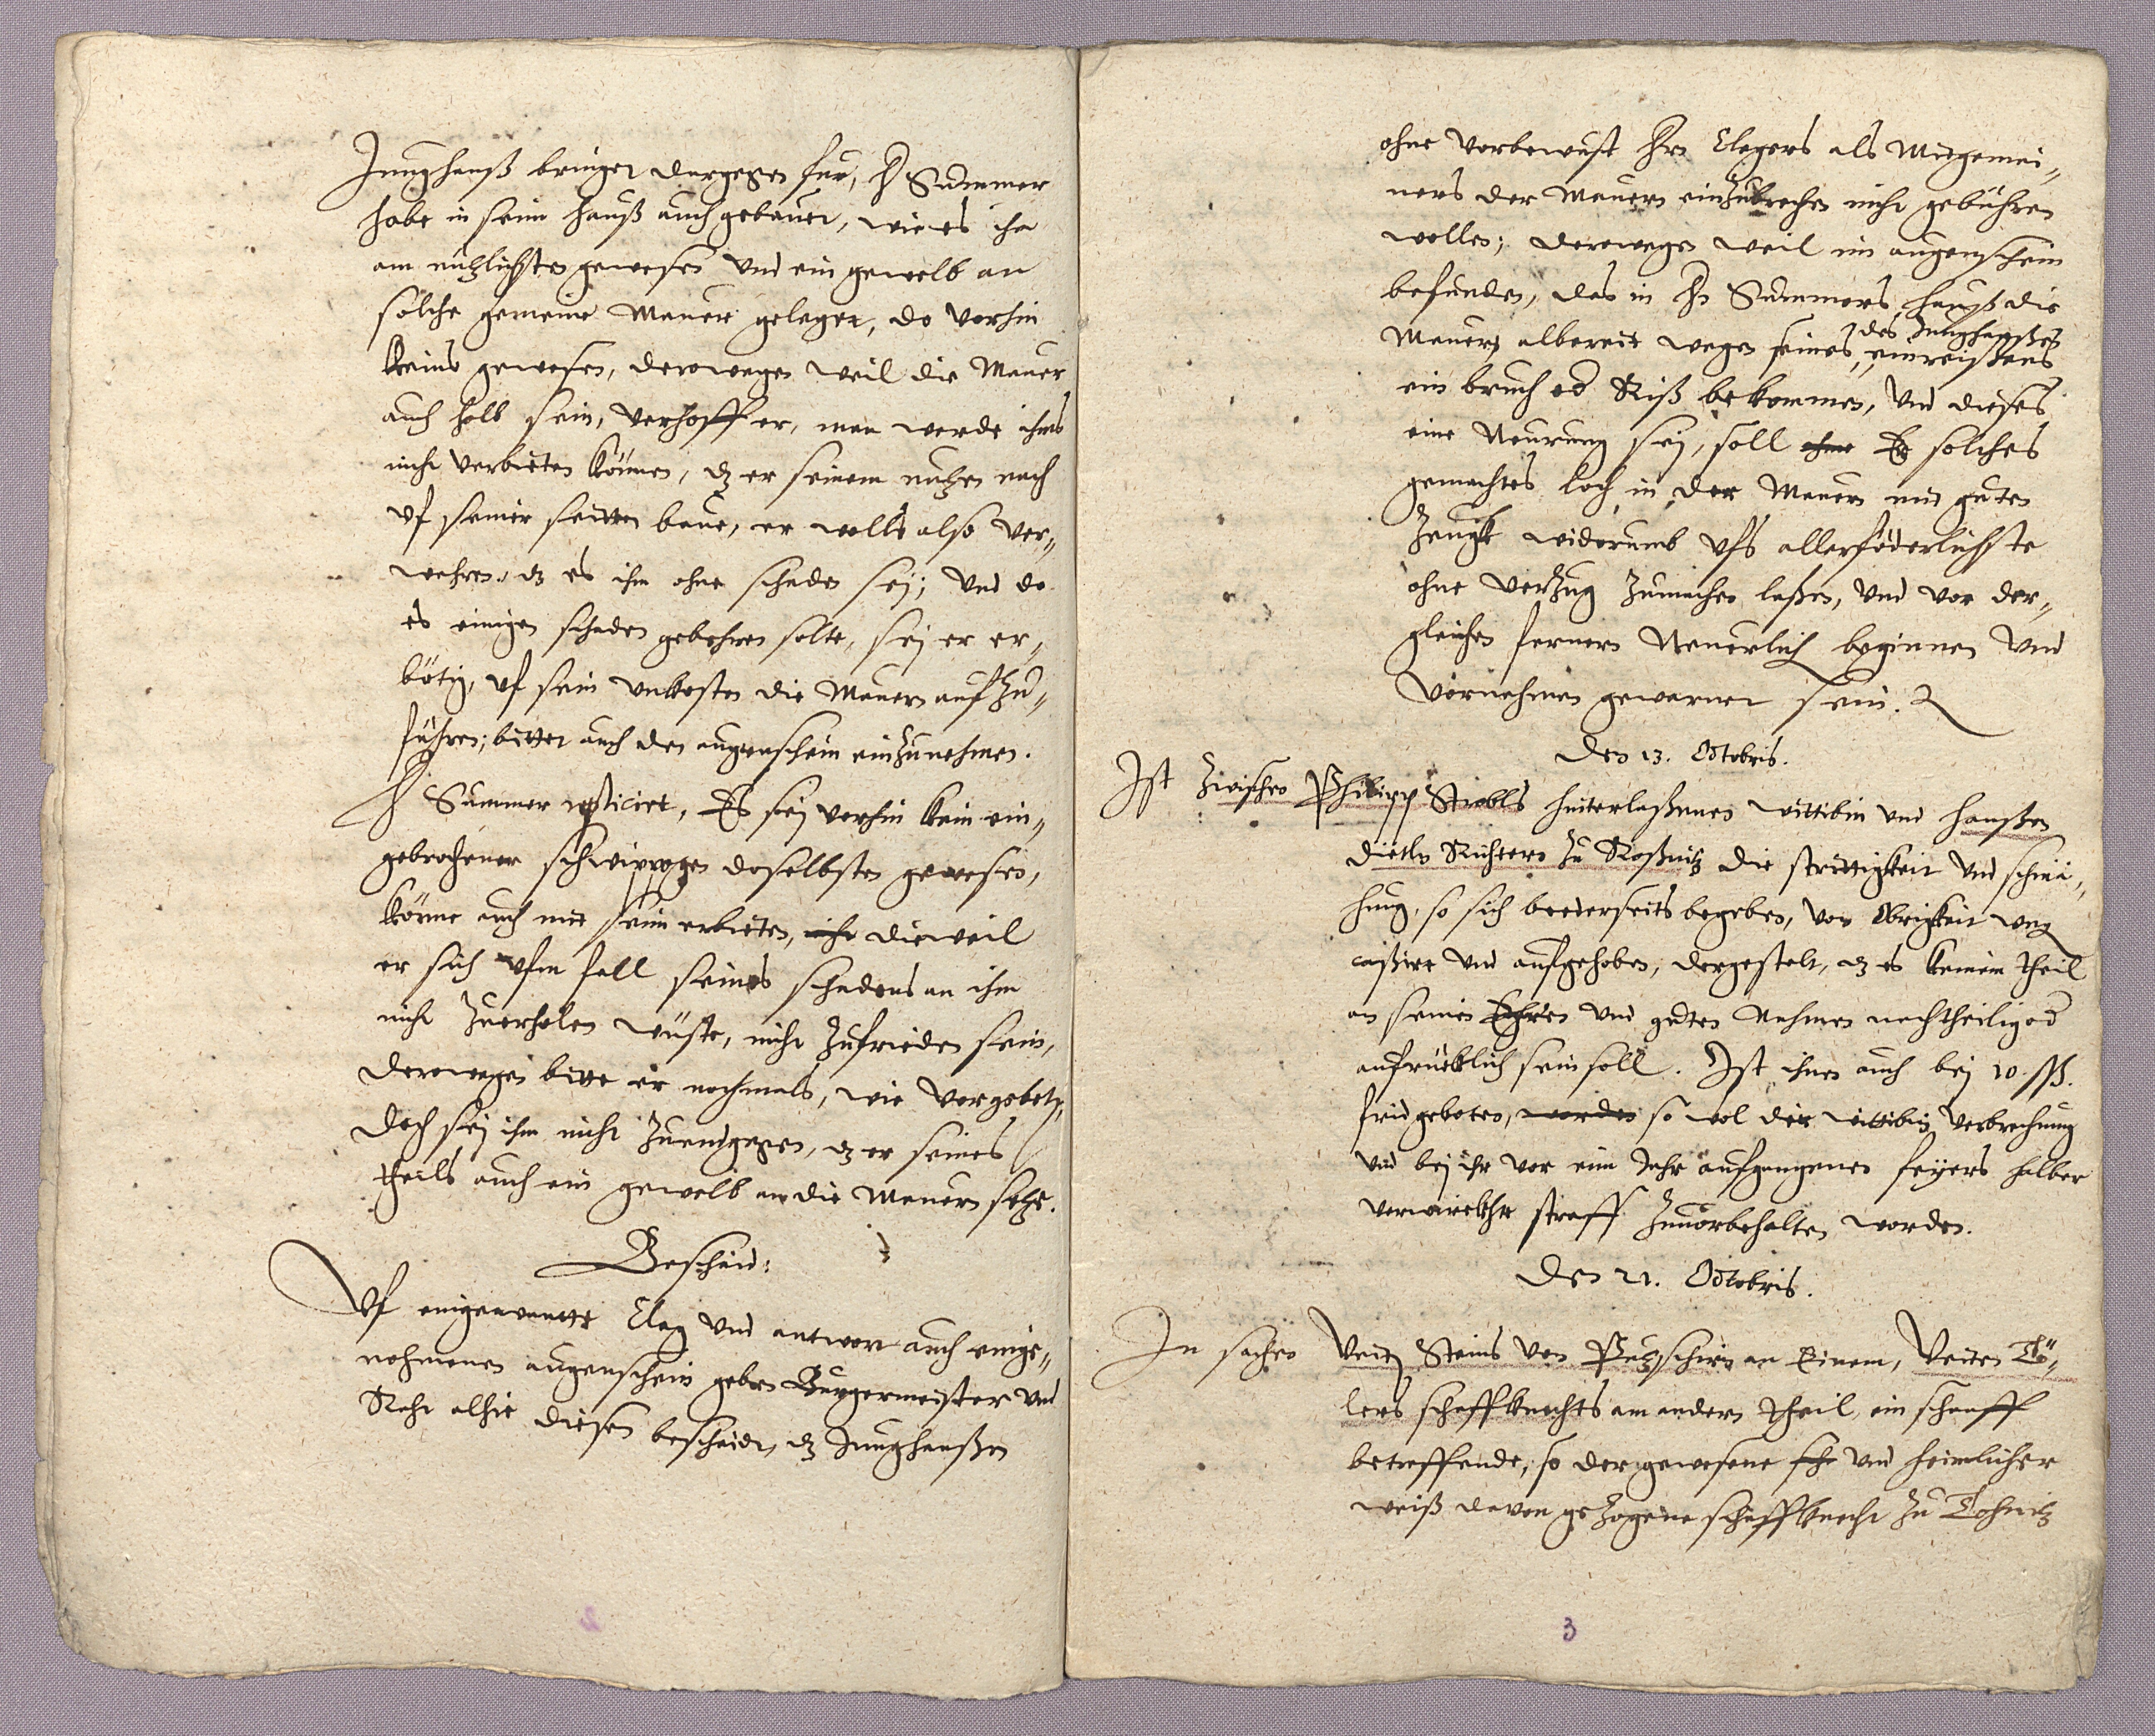 Junghanß bringet dargegen fur, H Summer
habe in seim hauß auch gebauet, wie es ihm
am nützlichsten gewesen vnd ein gewelb an
solche gemeine Mauer geleget, do vorhin
keins gewesen, derowegen weil die Mauer
auch halb sein, verhoff er, man werde ihms
nicht verbieten können, dz er seinem nutzen nach
vf seiner seitten baue, er wolls also ver„
wahren, dz es ihm ohne schaden sej; Vnd do
es einigen schaden gebehren solte, sej er er„
bötig, vf sein vnkosten die Mauern aufzu„
führen; bittet auch den augenschein einzunehmen.
H Summer replicirt, Es sej vorhin kein ein„
gebrochener schwipogen doselbsten gewesen,
könne auch mit seim erbieten, dieweil
er sich vfm fall seines schadens an ihm
nicht zuerholen wüste, nicht zufrieden sein,
derowegen bitte er nochmals, wie vorgebeten,
doch sej ihm nicht zuendgegen, dz er seines
theils auch ein gewelb an die Mauern setze.
Bescheid:
Vf eingewante Clag vnd antwort auch einge„
nohmenen augenschein geben Burgermeister vnd
Raht alhie diesen bescheidt, dz Junghanßen
ohne vorbewust Hrn Clegers als Mitgemei„
ners der Mauern einzubrechen nicht gebühren
wollen; derowegen weil im augenschein
befunden, das in Hn Summers hauß die
Mauern albereit wegen seines, des Junghanßen einreissens
ein bruch od Riß bekommen, Vnd dieses
eine Neurung sej, soll ihme Er solches
gemachtes loch in der Mauern mit guten
Zeugk widerumb vfs allerföderlichste
ohne verzug zumachen laßen, Vnd vor der„
gleichen fernern Neuerlich beginnen Vnd
Vornehmen gewarnet sein.
Den 13. Octobris.
Ist zwischen Philipp Strobls hinterlaßenen wittibin vnd Hanßen
Dietln Richtern zu Roßnitz die strittigkeit vnd schmä„
hung, so sich beederseits begeben, von Obrigkeit weg
caßirt vnd aufgehoben, dergestalt, dz es keinem theil
an seinen Ehren vnd guten Nahmen nachtheilig od
aufrücklich sein soll. Ist ihnen auch bej 10 ßß.
frid geboten, worden so wol der wittibin verbrechung
vnd bej ihr vor eim Jahr aufgangenes feyers halber
verwirckhte straff zuuorbehalten worden.
Den 21. Octobris.
In sachen Veitz Steins von Putzschirn an Einem, Veiten Tö„
lers schaffknechts am andern theil, ein schaaff
betreffende, so der gewesene vnd heimlicher
weiß davon gezogene schaffknecht zu Dohnitz
3